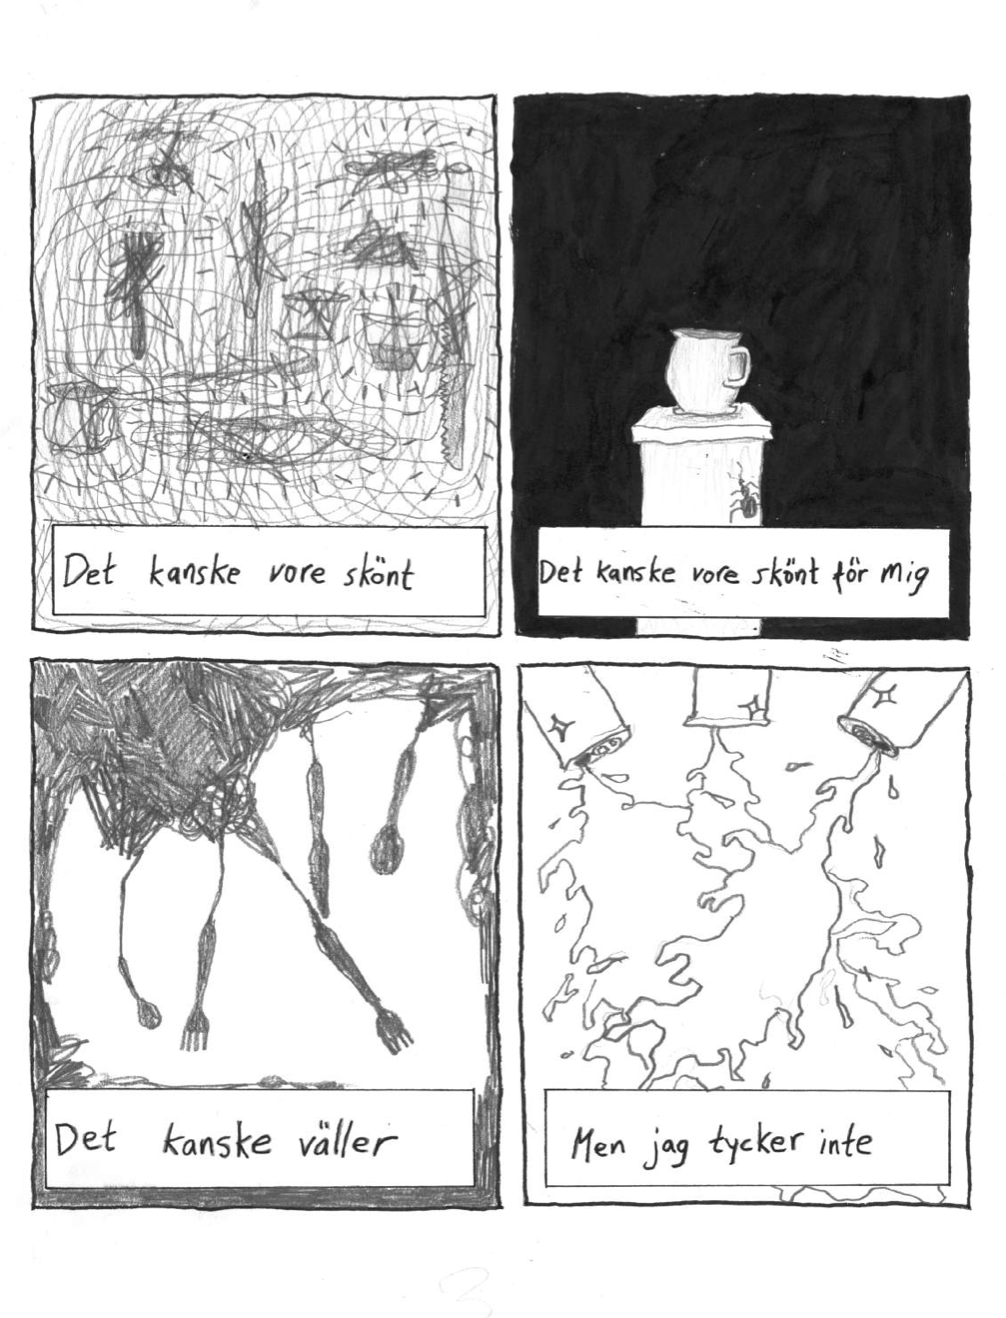 Det kanske vore skönt
Det kanske vore skönt för mig
Det kanske väller
Men jag tycker inte